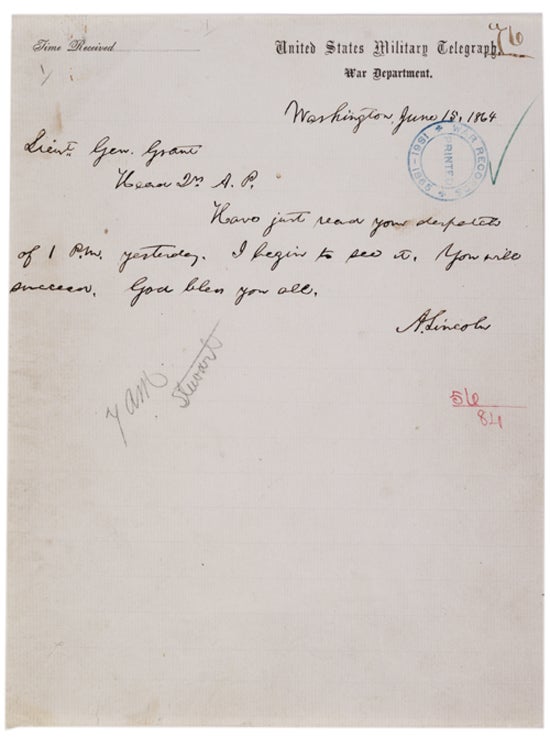 Time Received
United States Military Telegraph.
76
War Department.
Washington, June 15, 1864
WAR RECORDS
1861-1865
PRINTED
Lieut. Gen. Grant
Head Qrs A. P.
Have just read your despatch
of 1 P.M. yesterday. I begin to see it. You will
succeed. God bless you all.
A. Lincoln
7 am
Stewart
56
84